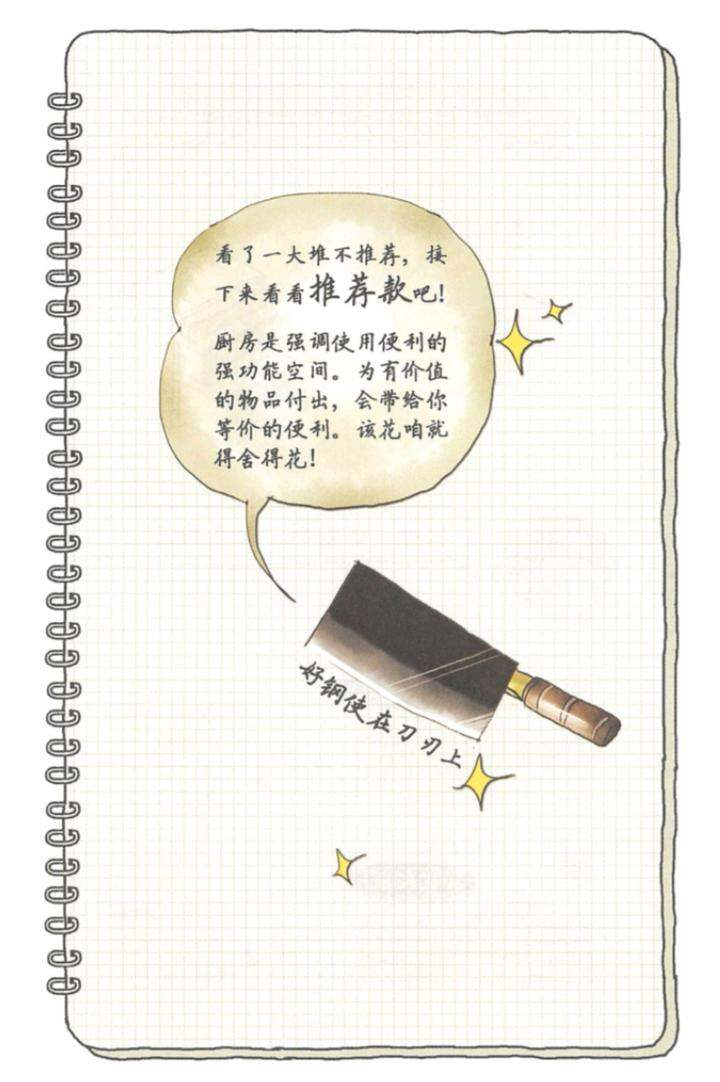 看了一大堆不推荐，接
下来看看推荐款吧！
厨房是强调使用便利的
强功能空间。为有价值
的物品付出，会带给你
等价的便利。该花咱就
得舍得花！
好钢使在刀刃上